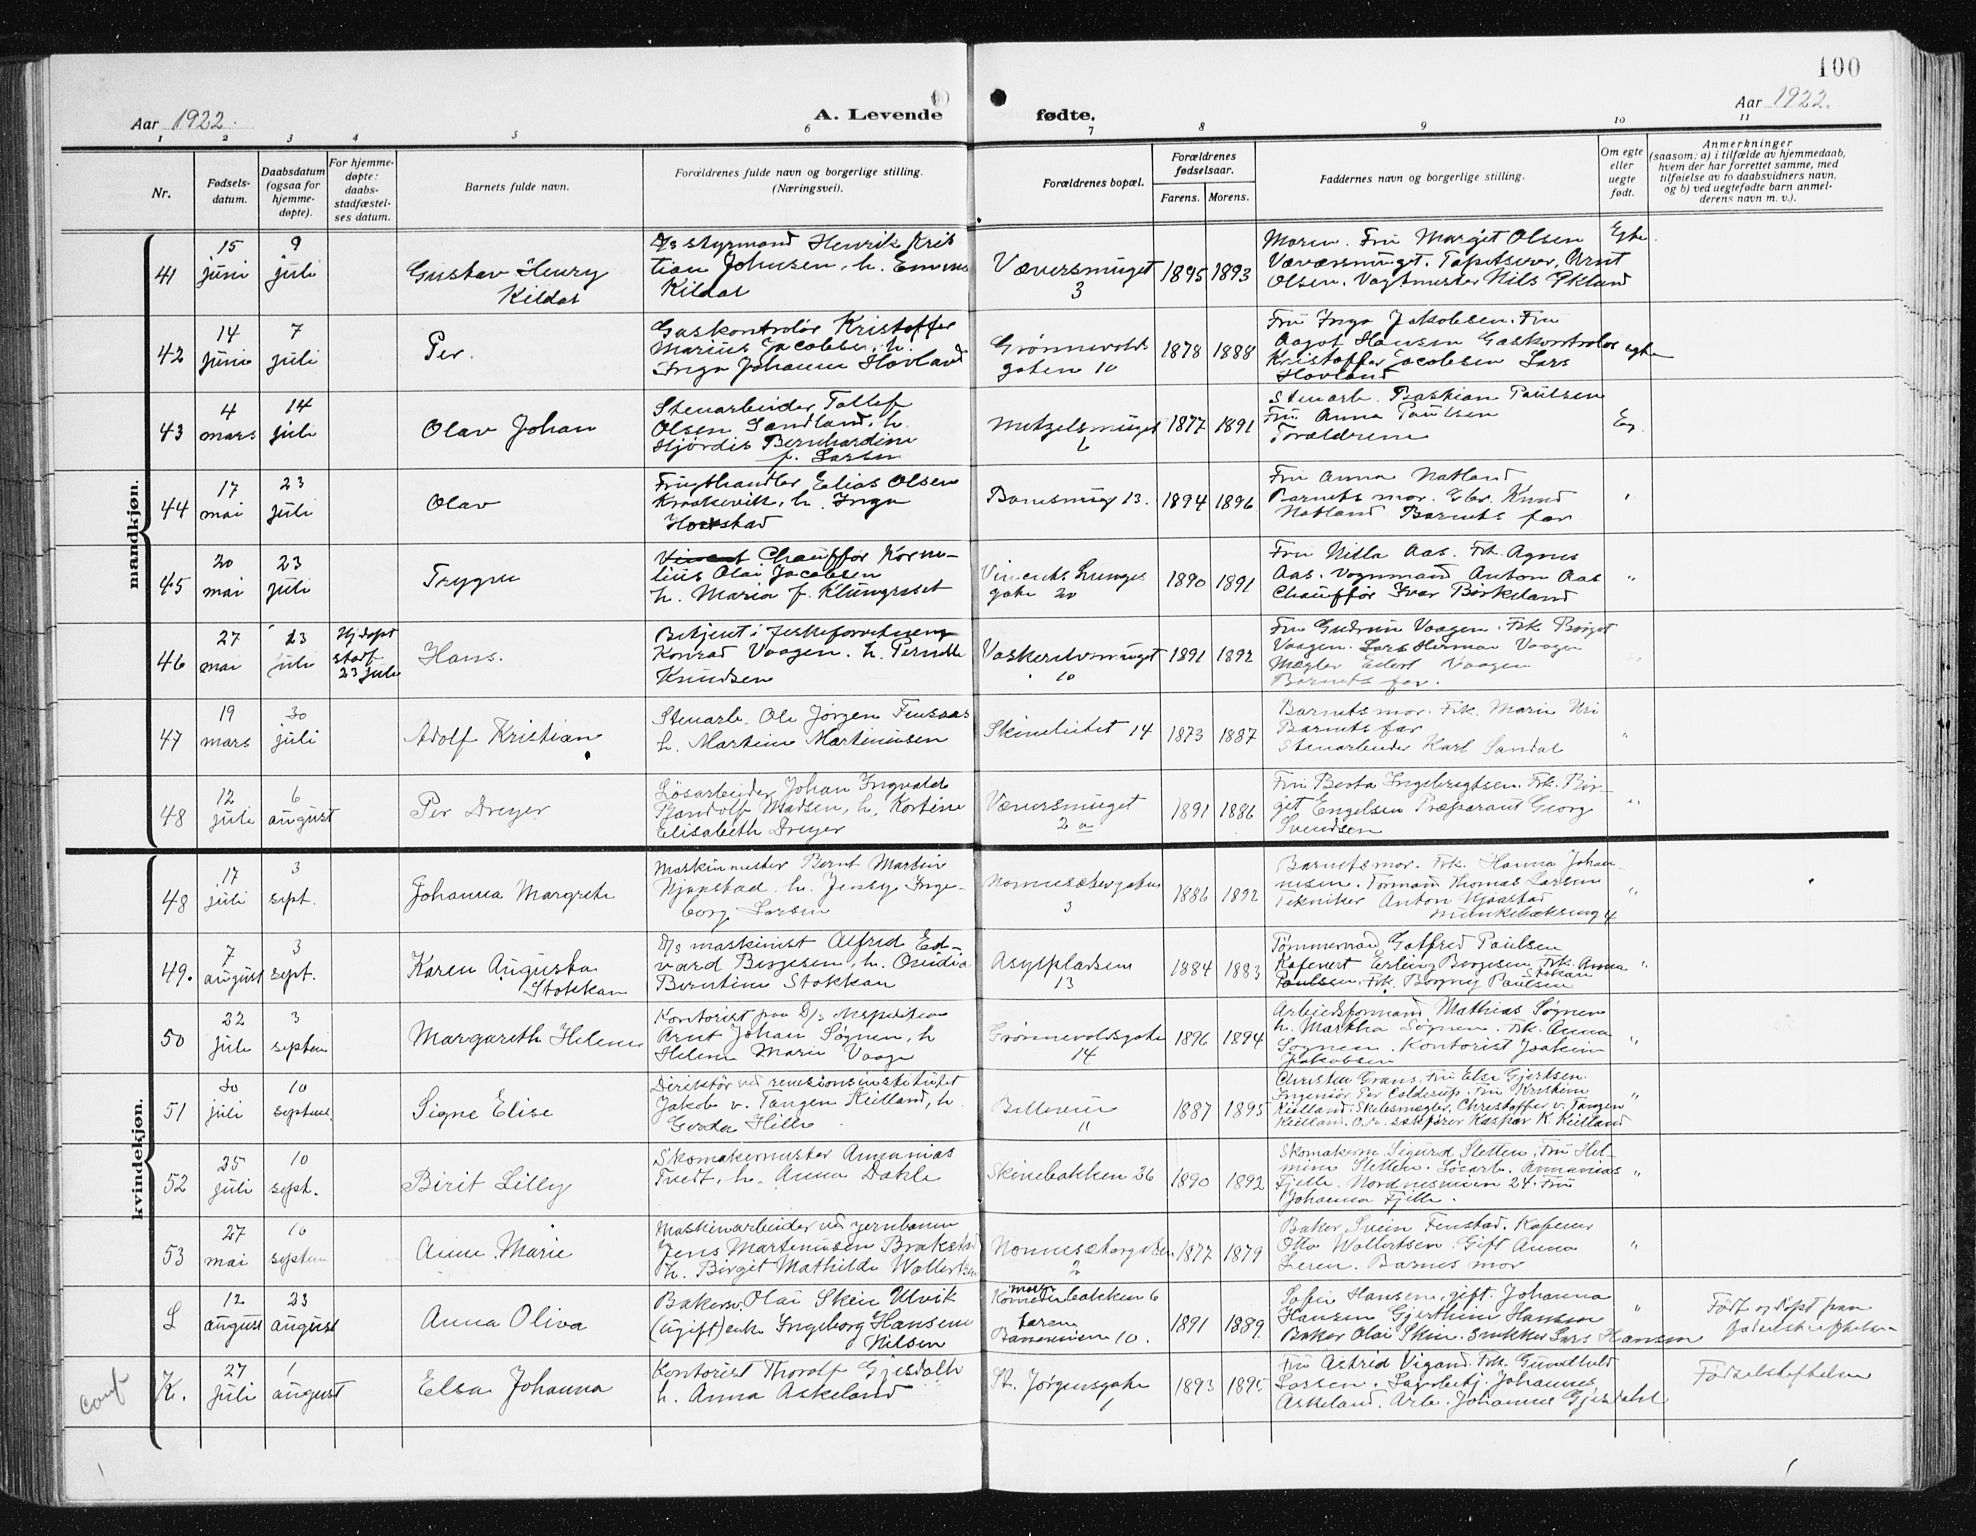 100
Aar 1922.
A. Levende
fødte.
Aar 1922.
1 2 3 4 5 6 7 8 9 10 11
Nr.
Fødsels-
datum.
Daabsdatum
(ogsaa for
hjemme-
døpte).
For hjemme-
døpte:
daabs-
stadfæstel-
ses datum.
Barnets fulde navn.
Forældrenes fulde navn og borgerlige stilling.
(Næringsvei).
Forældrenes bopæl.
Forældrenes
fødselsaar.
Farens. Morens.
Faddernes navn og borgerlige stilling.
Om egte
eller
uegte
født.
Anmerkninger
(saasom: a) i tilfælde av hjemmedaab,
hvem der har forrettet samme, med
tilføielse av to daabsvidners navn,
og b) ved uegtefødte barn anmel-
derens navn m. v.).
mandkjøn.
41
15
juni
9
juli
Gustav Henry
Kildal
D/s styrmand Henrik Kris
tian Johnsen, h. Emma
Kildal
Væversmuget
3
1895 1893
Moren. Fru Margit Olsen
Væversmuget. Tapetserer Arnt
Olsen. Vagtmester Nils Eklund
Egte.
42
14
juni
7
juli
Per.
Gaskontrolør Kristoffer
Marius Jacobsen, h.
Inga Johanne Hovland
Grønnevolds
gaten 10
1878 1888
Fru Inga Jakobsen. Fru
Aagot Hansen Gaskontrolør
Kristoffer Jacobsen Lars
Hovland
egte
43
4
mars
14
juli
Olav Johan
Stenarbeider Tollef
Olsen Sandland, h.
Hjördis Bernhardine
f. Larsen
Metzelsmuget
6
1877 1891
Stenarb. Bastian Paulsen
Fru Anna Paulsen
Forældrene
Eg.
44
17
mai
23
juli
Olav
Frugthandler Elias Olsen
Kraakevik, h. Inga
Hovstad
Banesmug 13.
1894 1896
Fru Anna Natland
Barnets mor. Gbr. Knud
Natland Barnets far
"
45
20
mai
23
juli
Trygve
Chauffør Korne-
lius Olai Jacobsen
h. Maria f. Klungreset
Vincents Lunges
gate 20
1890 1891
Fru Nilla Aas. Frk. Agnes
Aas. Vognmand Anton Aas
Chauffør Ivar Birkeland
"
46
27
mai
23
juli
Hj.døpt
stadf
23 juli
Hans.
Betjent i
Konrad Vaagen. h. Pernille
Knudsen
10
1891 1892
Fru Gudrun Vaagen. Frk Birgit
Vaagen. Lars Herman Vaagen
Mægler Edorf Vaagen
Barnets far.
"
47
19
mars
30
juli
Adolf Kristian
Stenarb. Ole Jørgen Finsaas
h. Martine Martinusen
14
1873 1887
Barnets mor. Frk. Marie Uri
Barnets far
Stenarbeider Karl Sandal
"
48
12
juli
6
august
Per Dreyer
Løsarbeider Johan Ingvald
Madsen, h. Kortine
Elisabeth Dreyer
Væversmuget
2 a
1891 1886
Fru Berta Ingebregtsen. Frk. Bir-
git Engelsen Præparant Georg
Svendsen
"
kvindekjøn.
48
17
juli
3
sept.
Johanna Margrete
Maskinmester Bernt Martin
Njaastad. h. Jensy Inge-
borg Larsen
Nonnesætergaten
3
1886 1892
Barnets mor. Frk. Hanna Johan-
nesen. Formand Thomas Larsen
Tekniker Anton Njaastad
Munkebæksmug 4
"
49.
7
august
3
sept.
Karen Augusta
Stokkan
D/s maskinist Alfred Ed-
vard Børgesen, h. Ovidia
Berntine Stokkan
Asylpladsen
13
1884 1883
Tømmermand Gotfred Paulsen
Kafevert Erling Børgesen. Frk. Anna
Stokan
Paulsen. Frk. Borgny Paulsen
"
50
22
juli
3
septem
Margareth Helene
Kontorist paa D/s expedition
Arnt Johan Søgnen, h
Helene Marie Vaage
Grønnevoldsgaten
14
1896 1894
Arbeidsformand Mathias Søgnen
h. Martha Søgnen. Frk. Anna
Søgnen. Kontorist Joakim
Jakobsen
"
51
30
juli
10
septem
Signe Elise
Direktør ved revisionsinstitutet
Jakob v. Tangen Kielland, h.
Gerda Hille
11
1887 1895
Christen Grans. Fru Else Gjertsen.
Ingeniør Per Colderup. Fru Kristine
Kielland. Skibsmægler Christoffer v. Tangen
Kielland. O.r. sakfører Kaspar K. Kielland
"
52
25
juli
10
sept.
Birit Lilly
Skomakermester Annanias
Tvedt, h. Anna Dahle
Skivebakken 26
1890 1892
Skomakerm. Sigurd Sletten. Fru Hel-
mine Sletten. Løsarb. Annanias
Fjelle. Nordnesveien 24. Fru
Johanna Fjelle.
"
53
27
mai
10
septem
Anne Marie
Maskinarbeider ved jernbanen
Jens Martinusen Brakstad
h. Birgit Mathilde Wallertsen
Nonnesætergaten
2
1877 1879
Baker Svein Fenstad. Kafeeier
Otto Wallertsen. Gift Anna
Leren. Barnets mor
"
L
12
august
23
august
Anna Oliva
Bakersv. Olai Skein Ulvik
(ugift) enke Ingeborg Hansine
Nilsen
moren
bakken 6
faren
10.
1891 1889.
Sofie Hansen, gift. Johanna
Hansen Gjerthine Hansen
Baker Olai Skein. Snekker Lars Hansen
"
Født og døpt paa
conf
K.
27
juli
1
august
Elsa Johanna
Kontorist Thorolf Gjesdahl
h. Anna Askeland
St. Jørgensgate
1
1893 1895
Fru Astrid Vigand. Frk. Gunthild
Larsen. Lagerbetj. Johannes
Askeland. Arb. Johannes Gjesdahl
Fødselsstiftelsen